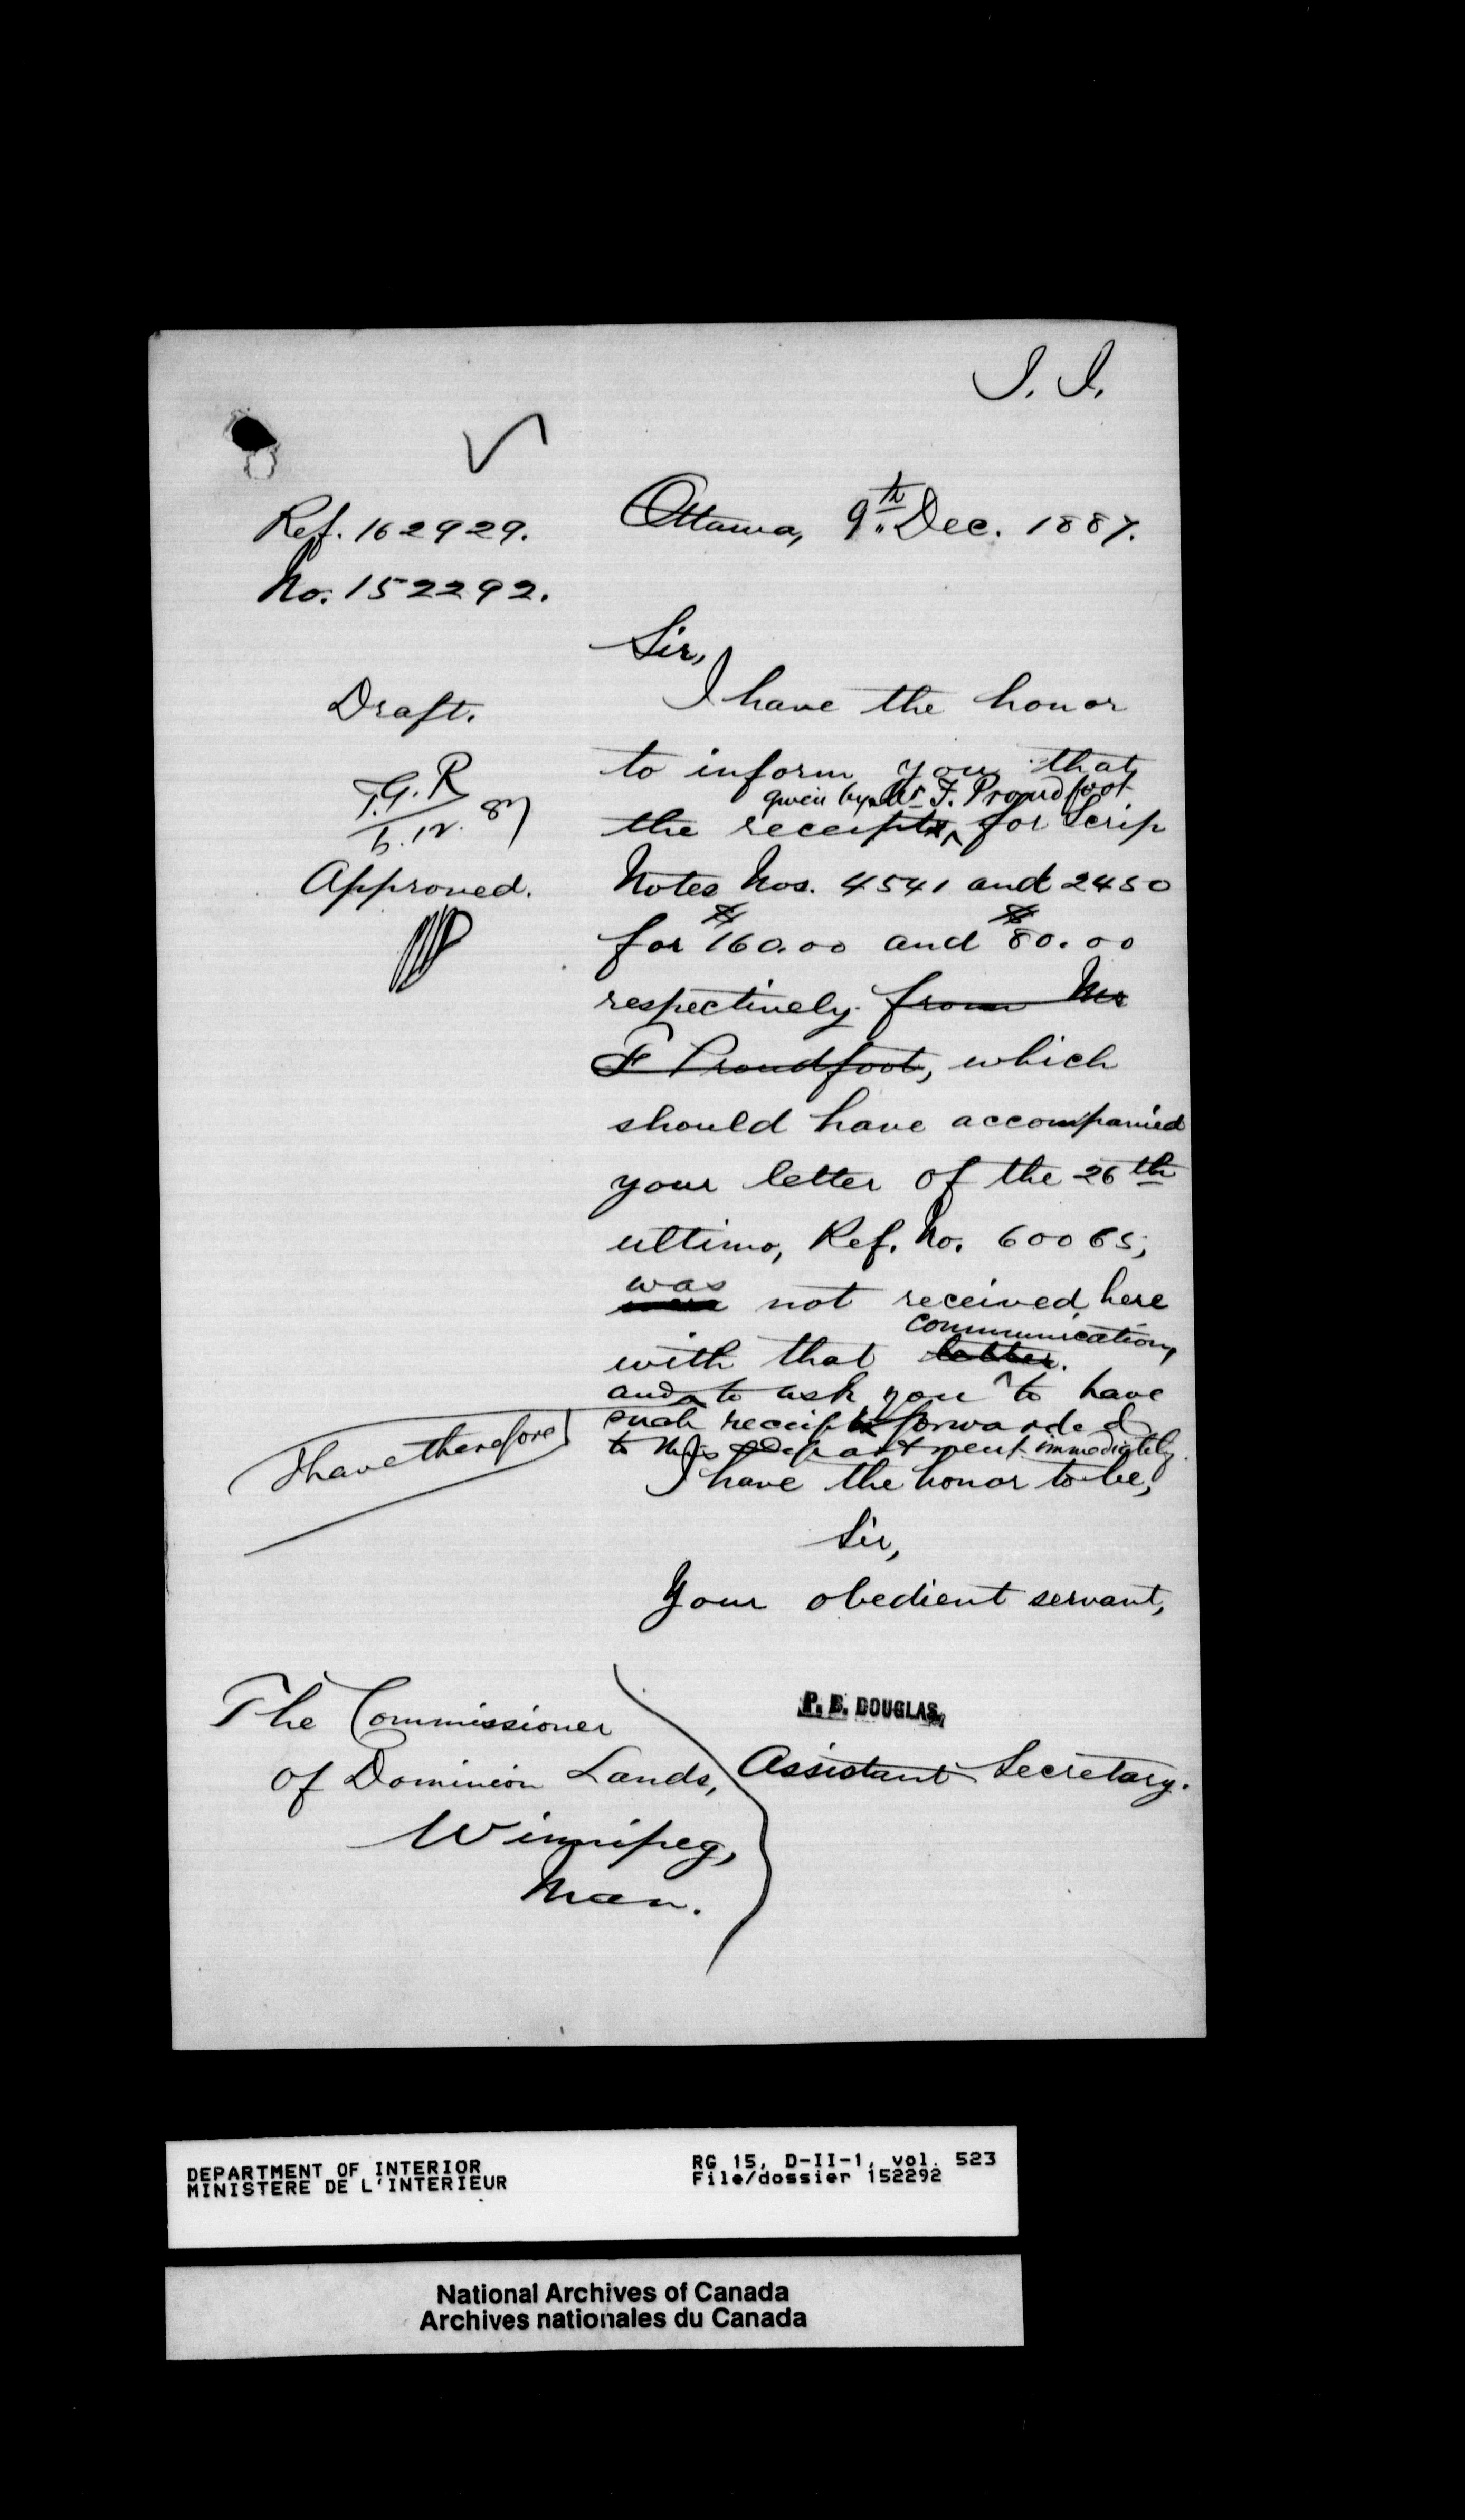 I. I.
Ref. 162929.
No. 152292.
Ottawa, 9th Dec. 1887.
Sir,
Draft.
I have the honor
to inform you that
T.G.R
given by Mr F. Proudfoot
the receipt for Scrip
Approved.
Notes Nos. 4541 and 2450
for $160.00 and $80.00
respectively from Mr
F Proudfoot, which
should have accompanied
your letter of the 26th
ultimo, Ref. No. 60065;
was
were not received here
communication,
with that letter.
and to ask you to have
such receipt forwarded
I have therefore
to this Department immediately.
I have the honor to be,
Sir,
Your obedient servant,
P. B. DOUGLAS,
Assistant Secretary.
The Commissioner
of Dominion Lands,
Winnipeg,
Man.
DEPARTMENT OF INTERIOR
MINISTERE DE L'INTERIEUR
RG 15, D-II-1, vol. 523
File/dossier 152292
National Archives of Canada
Archives nationales du Canada